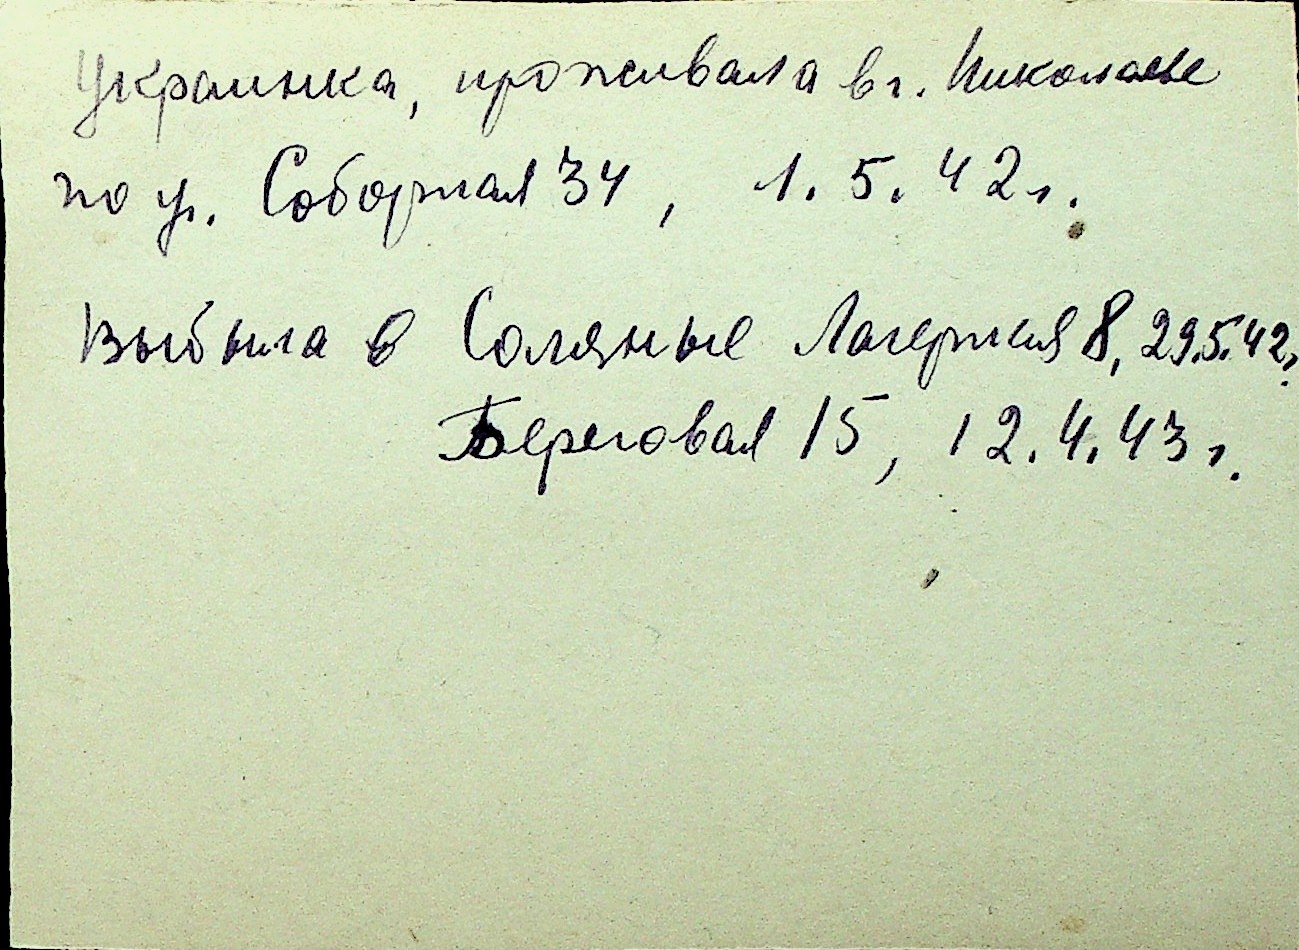 Украинка, проживала в г. Николаеве
по ул. Соборная 34, 1.5.42г.
Выбыла в Соляные Лагерная 8, 29.5.42г.
Береговая 15, 12.4.43г.